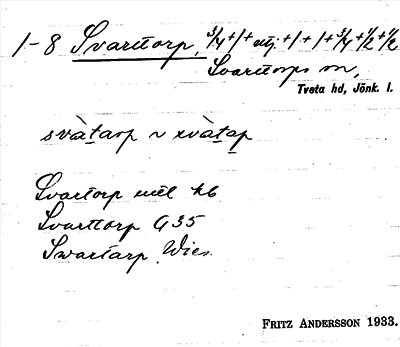 1-8 Svarttorp, 3/4+1+utj.+1+1+3/4+1/2+1/2
Svarttorps sn,
Tveta hd, Jönk. l.
svàtarp ~ xvàtap
Svartorp uttl kb
Svarttorp G 35
Swartarp Wies.
FRITZ ANDERSSON 1933.